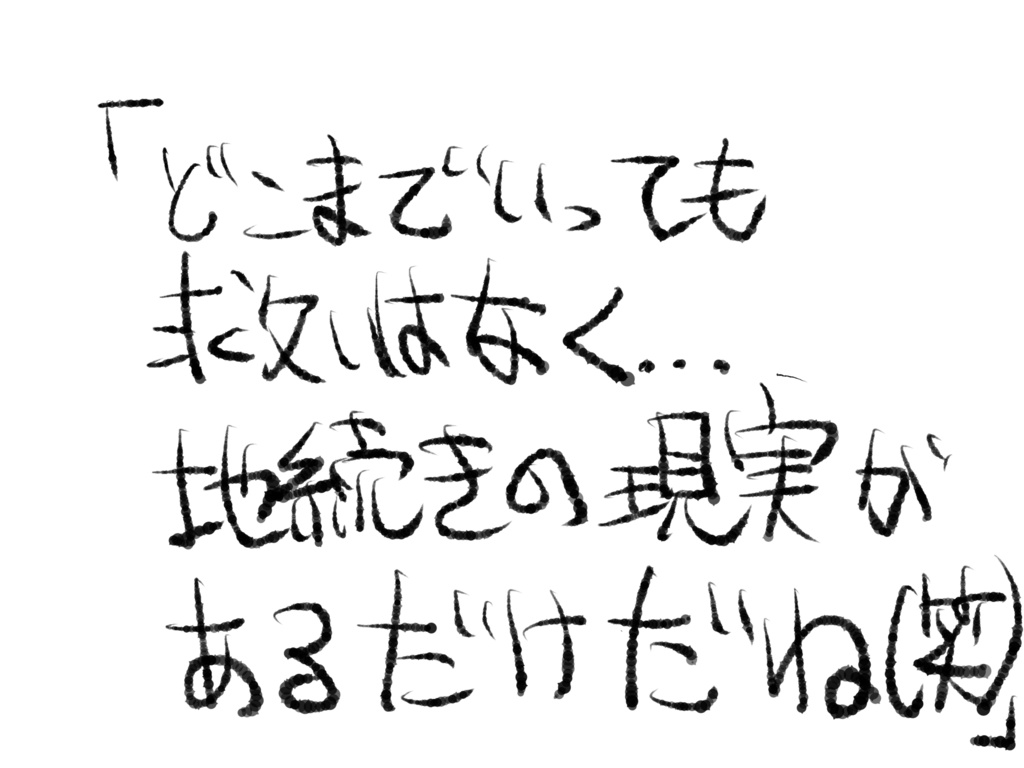 「どこまでいっても
救いはなく...
地続きの現実が
あるだけだね(笑)」